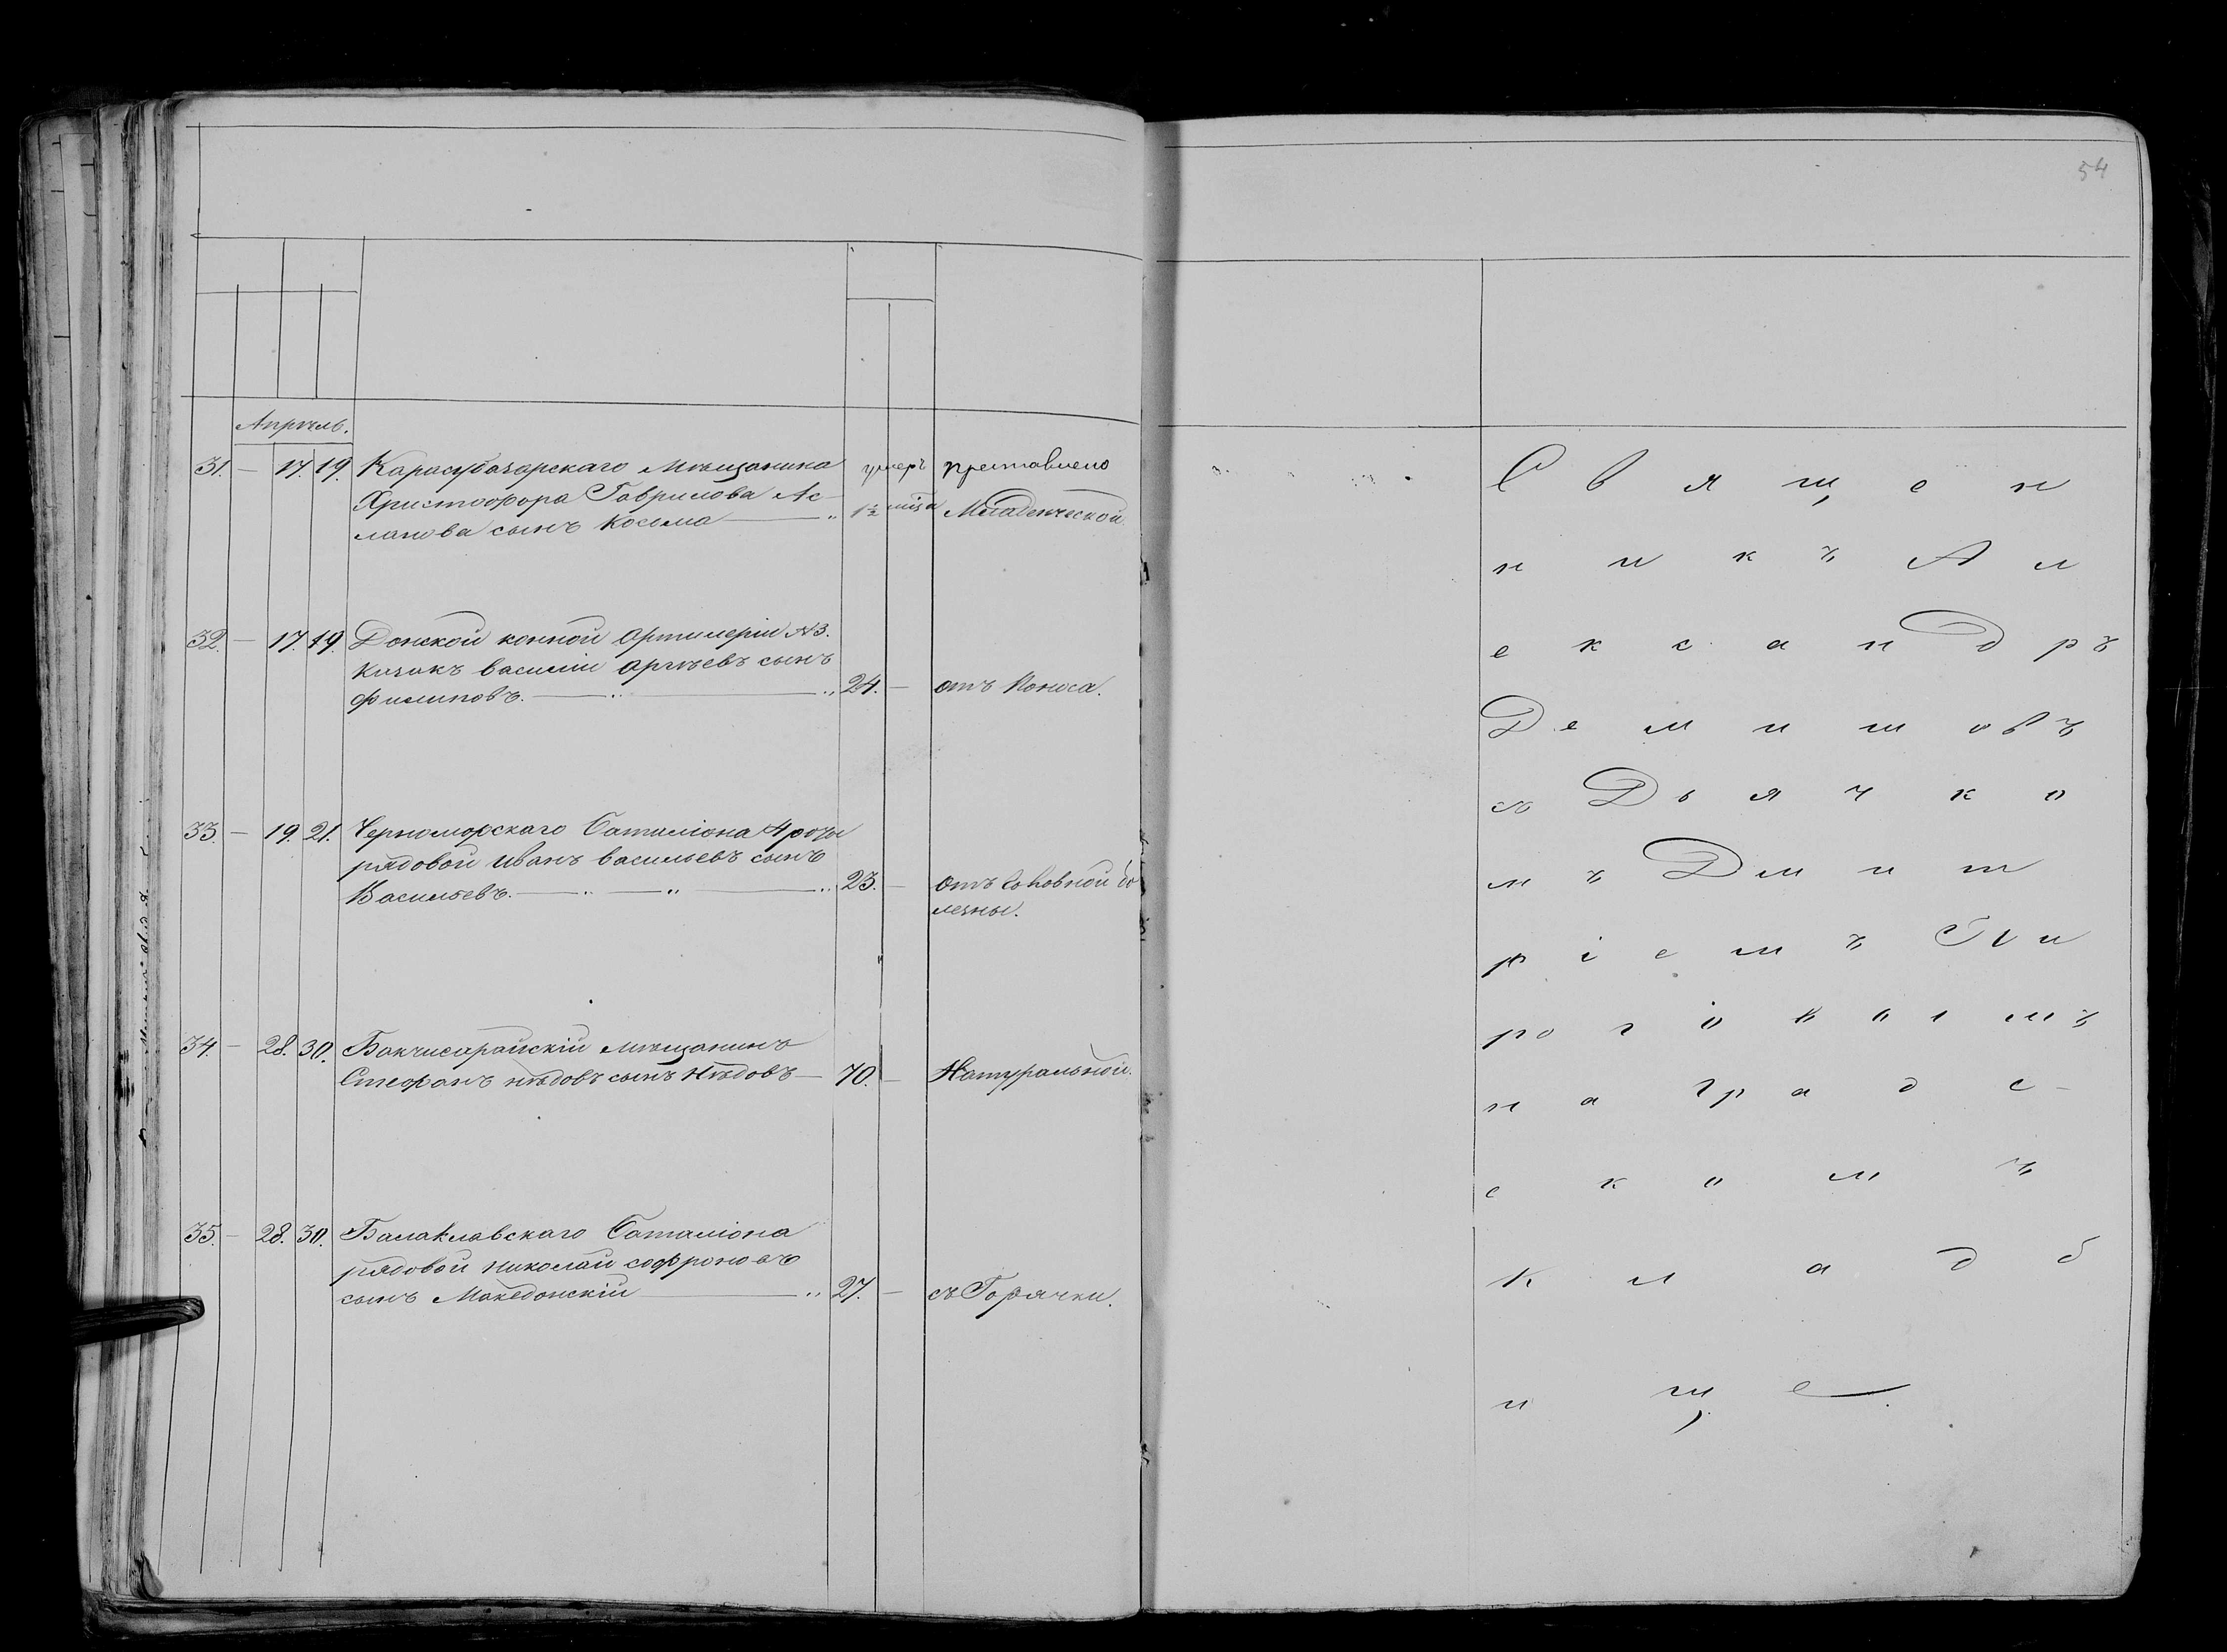 54
Апрѣль.
31. — 17. 19. Карасубазарскаго Мѣщанина умеръ
Христофора Гаврилова Ас-
ланова сынъ Косьма — „ 1½ Младенческой.
32. — 17. 19. Донской конной Артилеріи №3.
Казакъ василій сынъ
Филиповъ. — „ — „ 24. — отъ Поноса.
33. — 19. 21. Черноморскаго Баталіона 4 роты
рядовой иванъ васильевъ сынъ
Васильевъ. — „ — „ — „ 23. — отъ Головной бо
лезны.
34. — 28. 30. Бакчисарайскій мѣщанинъ
Стефанъ нѣдовъ сынъ Нѣдовъ — 70. — Натуральной.
35. — 28. 30. Балаклавскаго Баталіона
рядовой николай софроновъ
сынъ Македонскій — „ 27. — съ Горячки.
С в я щ е н
н и к ъ А л
е к с а н д р ъ
Д е м и ш о в ъ
съ Д ь я ч к о
м ъ Д м и т
р і е м ъ
н а г р а д с -
к о м ъ
к л а д б
и щ е.